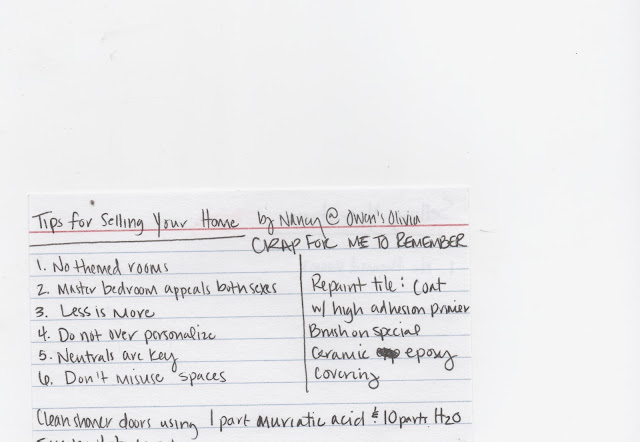 Tips for Selling Your Home by Nancy @ Owen's Olivia
CRAP FOR ME TO REMEMBER
1. No themed rooms
2. Master bedroom appeals both sexes
3. Less is More
4. Do not over personalize
5. Neutrals are key
6. Don't misuse spaces
Repaint tile: Coat
w/ high adhesion primer
Brush on special
Ceramic epoxy
Covering
Clean shower doors using 1 part muriatic acid & 10 parts H2O